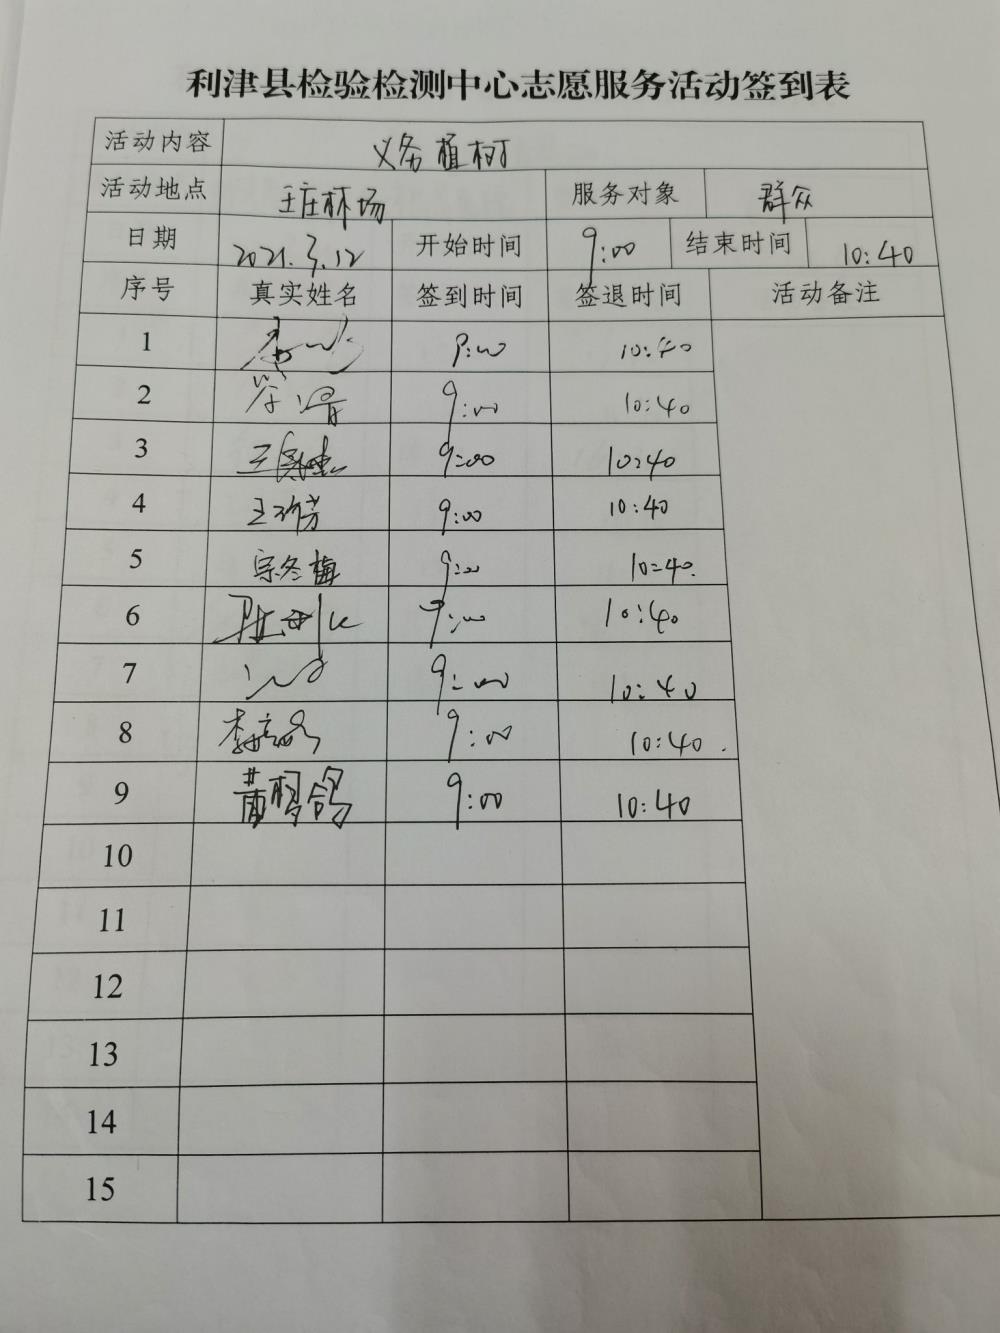 利津县检验检测中心志愿服务活动签到表
活动内容 义务植树
活动地点 王庄林场 服务对象 群众
日期 2021.3.12 开始时间 9:00 结束时间 10:40
序号 真实姓名 签到时间 签退时间 活动备注
1 9:00 10:40
2 9:00 10:40
3 9:00 10:40
4 9:00 10:40
5 宗冬梅 9:00 10:40.
6 9:00 10:40
7 9:00 10:40
8 9:00 10:40.
9 9:00 10:40
10
11
12
13
14
15